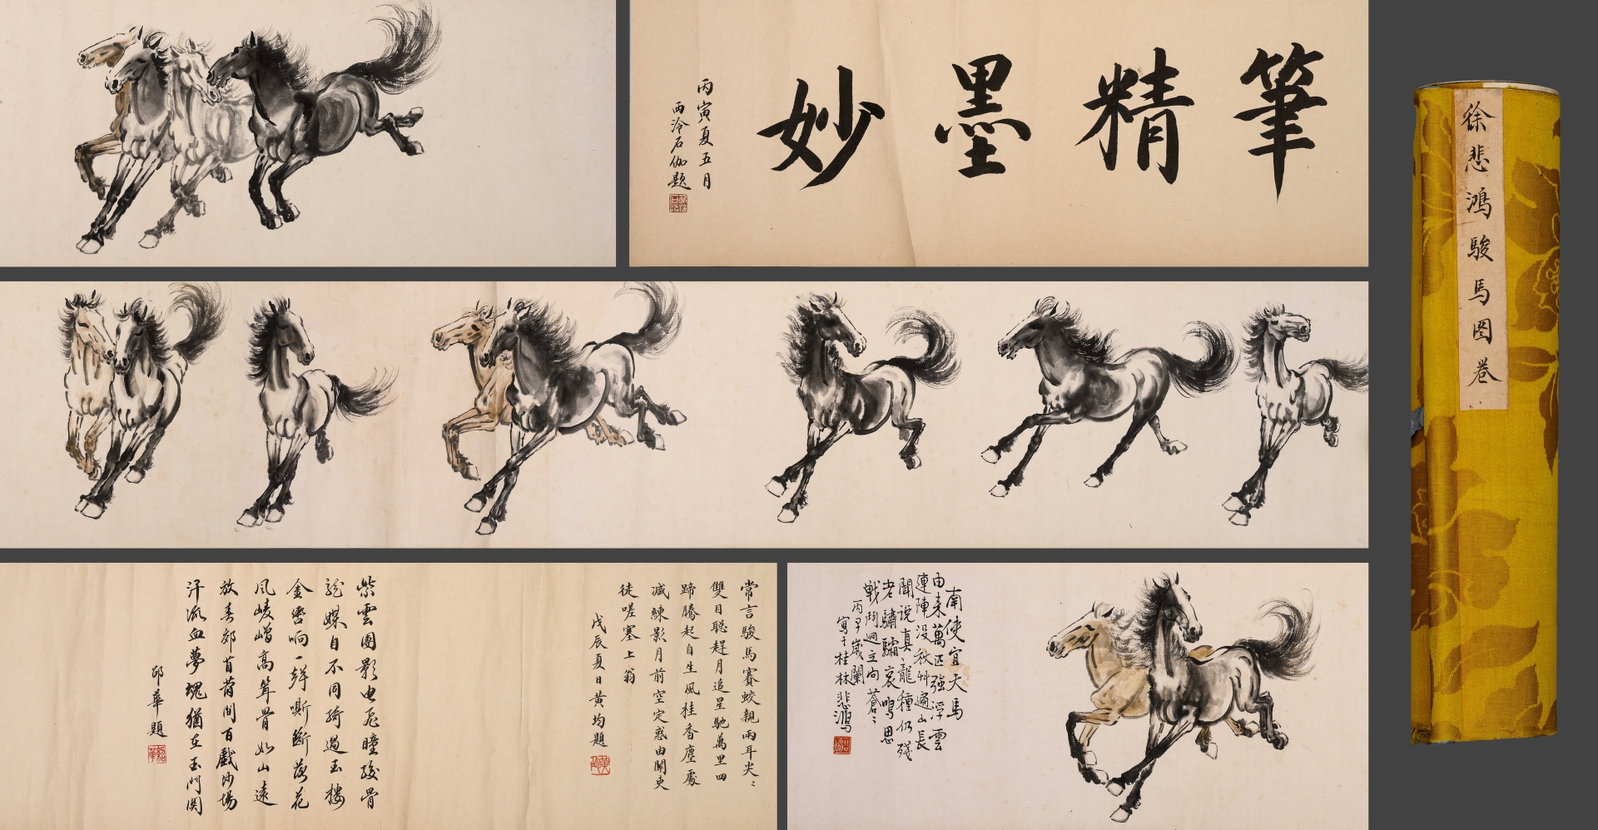 筆精墨妙
丙寅夏五月
西泠石伽題
徐悲鴻駿馬图卷
南使宜天馬
由来萬匹強浮雲
連陣没秋艸遍山長
聞說真龍種仍殘
老驌驦哀鳴思
戰鬥迥立向蒼〻
丙子歲闌
寫于桂林悲鴻
常言駿馬賽蛟龍兩耳尖〻
雙目聰趕月追星馳萬里四
蹄騰起自生風桂香塵
減練影月前空定惑由關吏
徒嗟塞上翁
戊辰夏日黄均題
紫雲團影電飛瞳駿骨
龍媒自不同騎過玉樓
金轡响一聲嘶斷落花
風崚嶒高聳骨如山遠
放春郊苜蓿間百戲沙場
汗流血夢魂猶在玉門関
邱華題